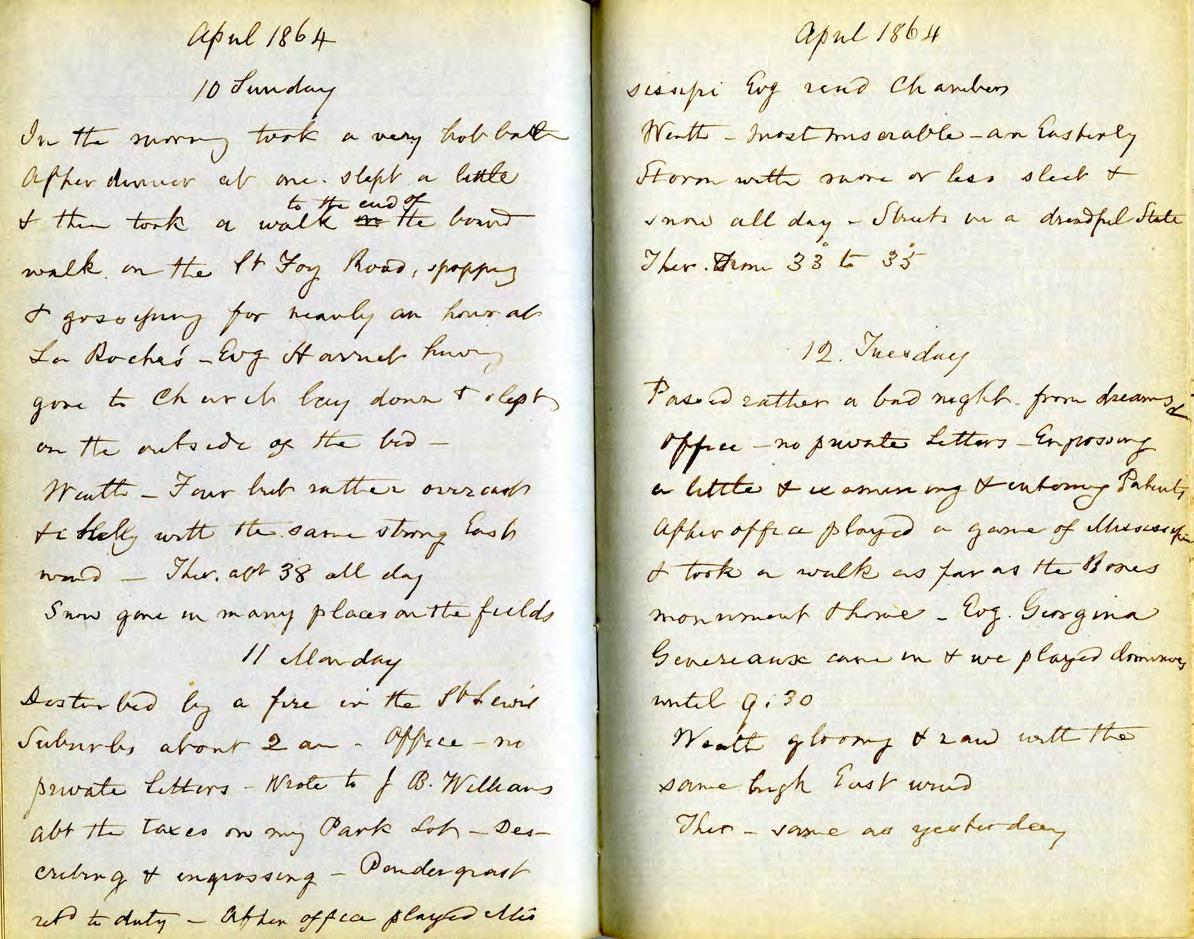 April 1864
10 Sunday
In the morning took a very hot bath
After dinner at one. slept a little
to the end of
& then took a walk on the board
walk on the St Foy Road, stopping
& gossiping for nearly an hour at
La Roche's - Evg Harriet having
gone to Church lay down & slept
on the outside of the bed -
Weath - Fair but rather overcast
& chilly with the same strong East
wind - Ther. abt 38 all day
Snow gone in many places on the fields
11 Monday
Disturbed by a fire in the St Lewis
Suburbs about 2 am - Office - no
private letters - Wrote to J B. Williams
abt the taxes on my Park Lot - Des-
cribing & engrossing - Pendergrast
retd to duty - After office played Mis
April 1864
sissipi Evg read Chambers
Weath - most miserable - an Easterly
Storm with more or less sleet &
snow all day - Streets in a dreadful State
Ther. from 33° to 35°
12. Tuesday
Passed rather a bad night from dreams
Office - no private letters - Engrossing
a little & examining & entering Patents
After office played a game of Mississipi
& took a walk as far as the Bones
monument & home - Evg. Georgina
Genereaux came in & we played dominoes
until 9:30
Weath gloomy & raw with the
same high East wind
Ther - same as yesterday